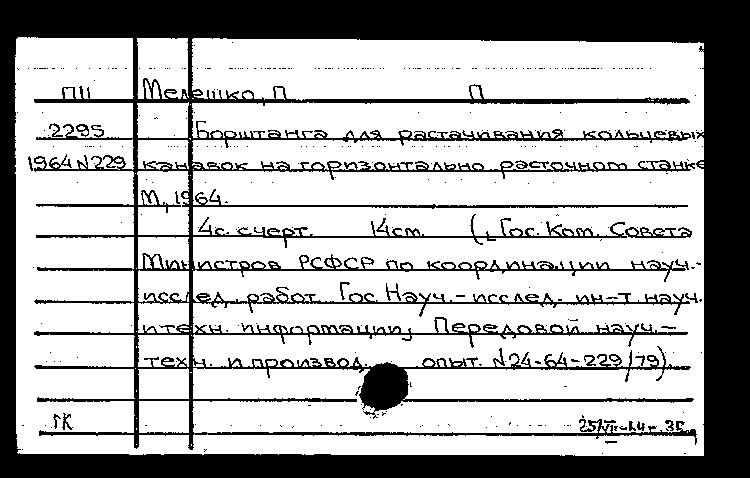 П11 Мелешко, П П
2295 Борштанга для растачивания кольцевых
1964 N 229 канавок на горизонтально расточном станке
М, 1964.
4с. с черт. 14см. (Гос. Ком. Совета
Министров РСФСР по координации науч.-
исслед. работ Гос Науч.-исслед. ин-т науч.
и техн. информации, Передовой науч.-
техн. и производ. опыт. N 24-64-229/79).